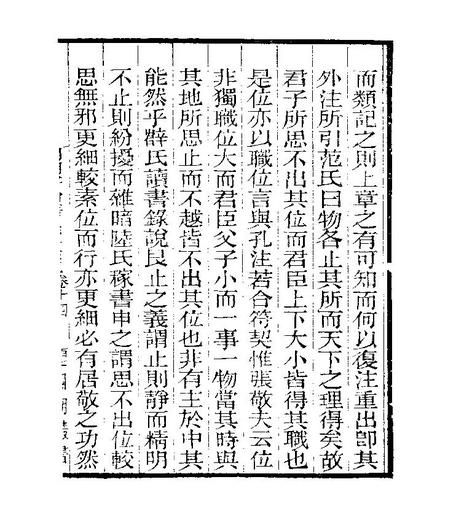 而類記之則上章之有可知而何以復注重出卽其
外注所引范氏曰物各止其所而天下之理得矣故
君子所思不出其位而君臣上下大小皆得其職也
是位亦以職位言與孔注若合符契惟張敬夫云位
非獨職位大而君臣父子小而一事一物當其時與
其地所思止而不越皆不出其位也非有主於中其
能然乎薛氏讀書錄說艮止之義謂止則靜而精明
不止則紛擾而雜暗陸氏稼書申之謂思不出位較
思無邪更細較素位而行亦更細必有居敬之功然